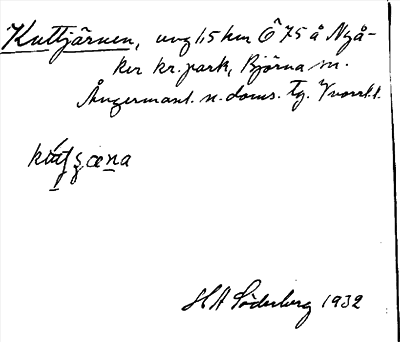 Kuttjärnen, ung 1,5 km Ö 75 å Nyå-
ker kr. park, Björna sn.
Ångermanl. n. doms. tg. Y
H A Söderberg 1932